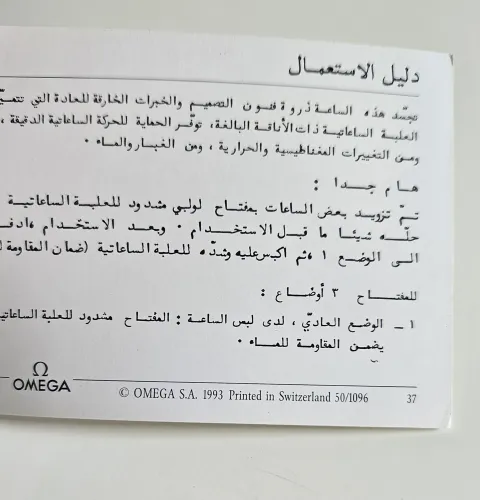 دليل الاستعمال
تجسّد هذه الساعة ذروة فنون التصميم والخبرات الخارقة للعادة التي تتميّز
العلبة الساعاتية ذات الأناقة البالغة، توفّر الحماية للحركة الساعاتية الدقيقة ،
ومن التغييرات المغناطيسية والحرارية ، ومن الغبار والماء ٠
هام جدا :
تمّ تزويد بعض الساعات بمفتاح لولبي مشدود للعلبة الساعاتية
حلّه شيئا ما قبل الاستخدام ٠ وبعد الاستخدام ،
الى الوضع ١ ،ثم اكبس عليه وشدّه للعلبة الساعاتية (ضمان المقاومة
للمفتاح ٣ أوضاع :
١ ـ الوضع العاديّ ، لدى لبس الساعة : المفتاح مشدود للعلبة الساعاتية
يضمن المقاومة للماء ٠
Ω
OMEGA
© OMEGA S.A. 1993 Printed in Switzerland 50/1096
37